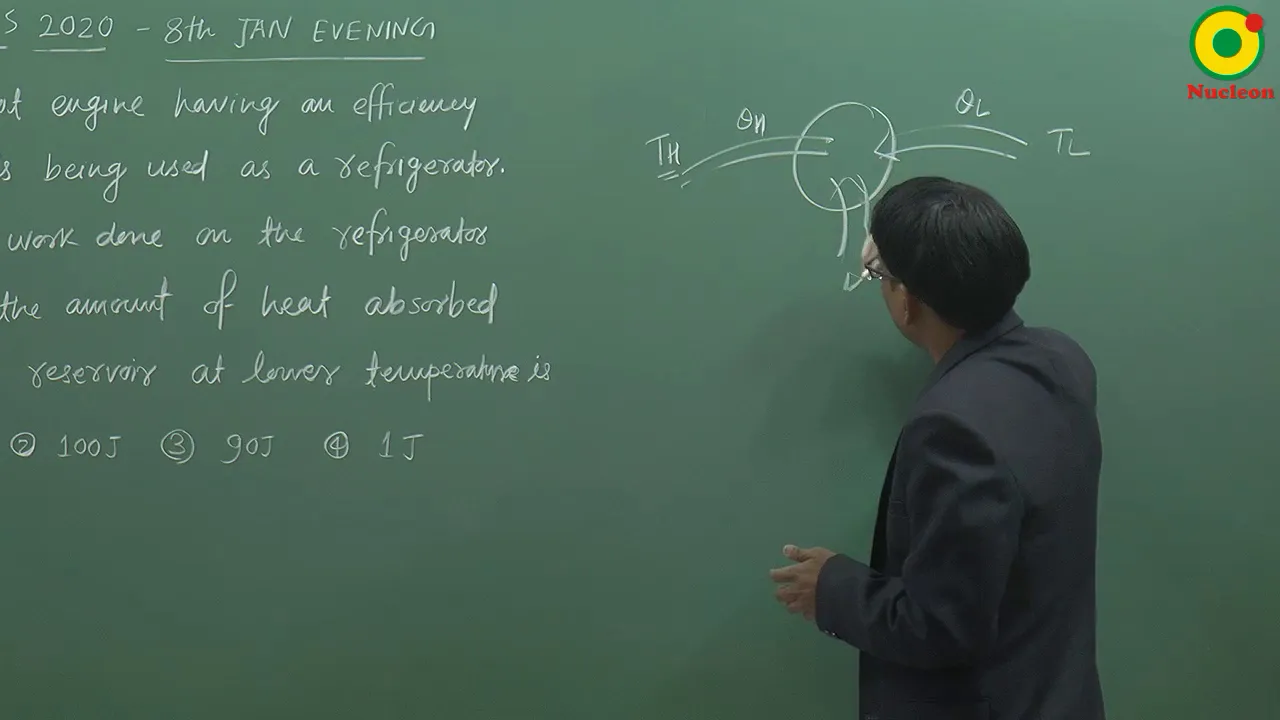 S 2020 - 8th JAN EVENING
ot engine having an efficiency
s being used as a refrigerator.
work done on the refrigerator
the amount of heat absorbed
reservoir at lower temperature is
② 100J ③ 90J ④ 1J
QH
QL
TH
TL
Nucleon